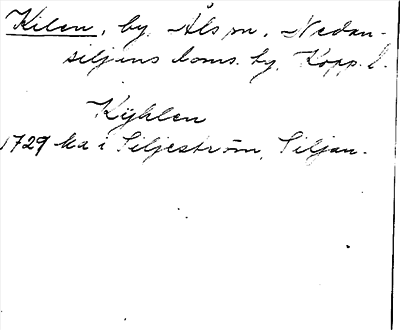 Kilen, by, Åls sn, Nedan-
siljans doms. by, Kopp. l.
Kÿhlen
1729 ka i Siljeström, Siljan.